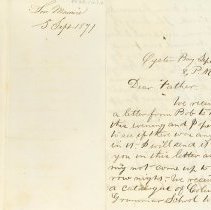 From Mamie
5 Sept. 1871
Oyster Bay Sep
8 P.M.
Dear Father.
We recei
a letter from Bob to
this evening and I
to see if there was an
in it & will end it
you in this letter as
may not come up to
row night. We recei
a catalogue of Colum
Grammar School to